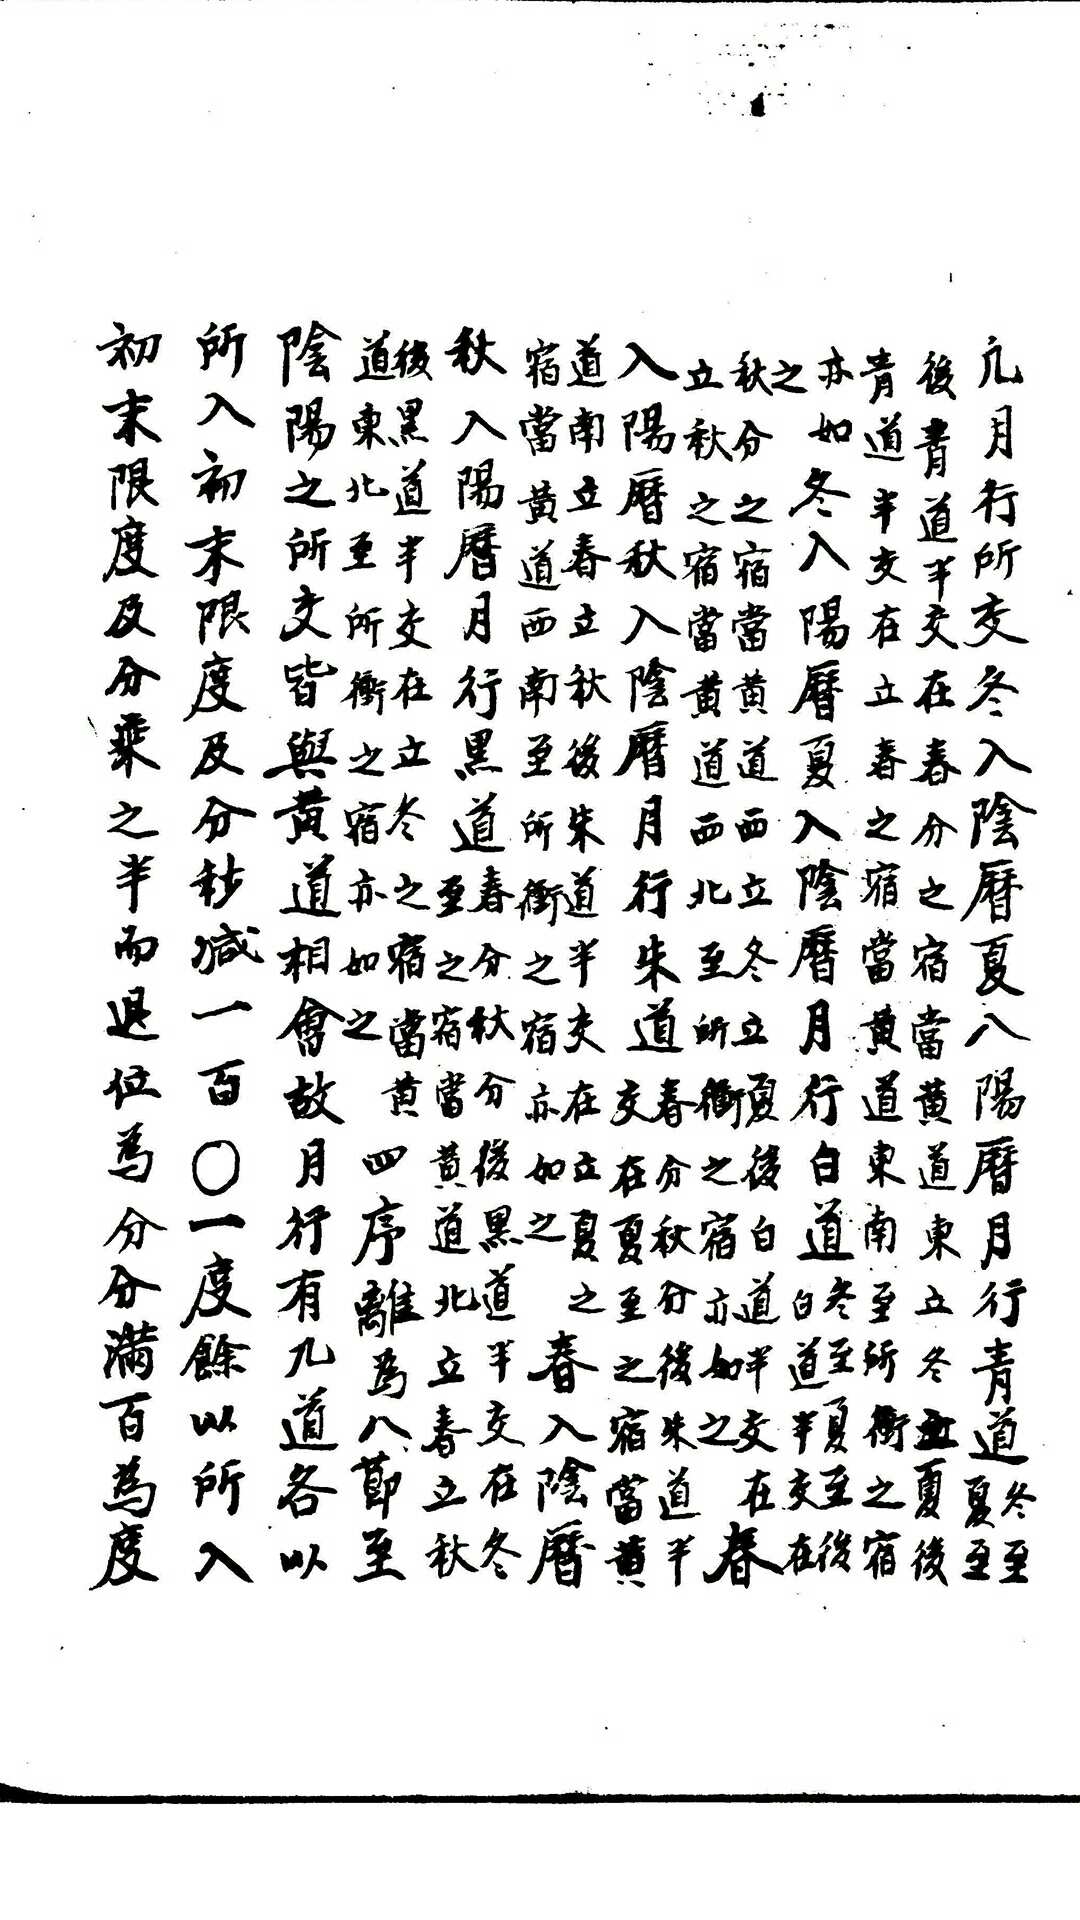 凡月行所交冬入陰曆夏入陽曆月行青道冬至夏至
後青道半交在春分之宿當黃道東立冬立夏後
青道半交在立春之宿當黃道東南至所衝之宿
亦如之冬入陽曆夏入陰曆月行白道冬至夏至後白道半交在
秋分之宿當黃道西立冬立夏後白道半交在
立秋之宿當黃道西北至所衝之宿亦如之春
入陽曆秋入陰曆月行朱道春分秋分後朱道半交在夏至之宿當黃
道南立春立秋後朱道半交在立夏之
宿當黃道西南至所衝之宿亦如之春入陰曆
秋入陽曆月行黑道春分秋分後黑道半交在冬至之宿當黃道北立春立秋
後黑道半交在立冬之宿當黃
道東北至所衝之宿亦如之四序離為八節至
陰陽之所交皆與黃道相會故月行有九道各以
所入初末限度及分秒減一百〇一度餘以所入
初末限度及分乗之半而退位為分分滿百為度